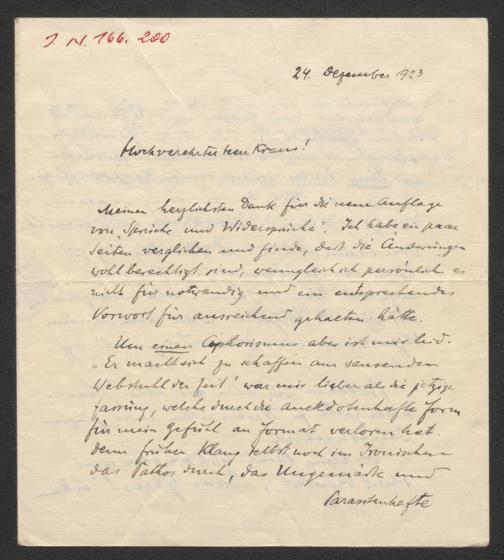 J. N. 166. 280
24. Dezember 1923
Hochverehrter Herr Kraus!
Meinen herzlichsten Dank für die neue Auflage
von „Sprüche und Widersprüche". Ich habe ein paar
Seiten verglichen und finde, daß die Änderungen
wohl berechtigt sind, wenngleich ich persönlich es
nicht für notwendig und ein entsprechendes
Vorwort für ausreichend gehalten hätte.
Um einen Aphorismus aber ist mir leid.
„Er macht sich zu schaffen am sausenden
Webstuhl der Zeit" war mir lieber als die jetzige
Fassung, welche durch die anekdotenhafte Form
für mein Gefühl an Format verloren hat.
Denn früher klang selbst noch im Ironischen
das Pathos durch, das Ungemäße und
Parasitenhafte